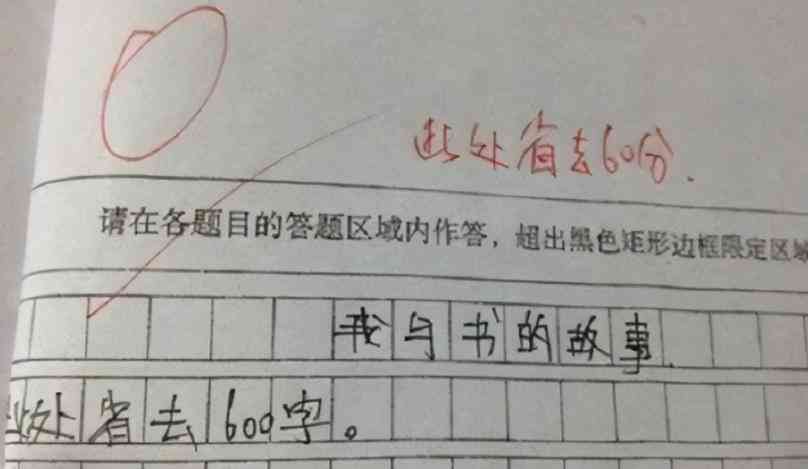 0
此处省去60分.
请在各题目的答题区域内作答，超出黑色矩形边框限定区域
我与书的故事
此处省去600字。